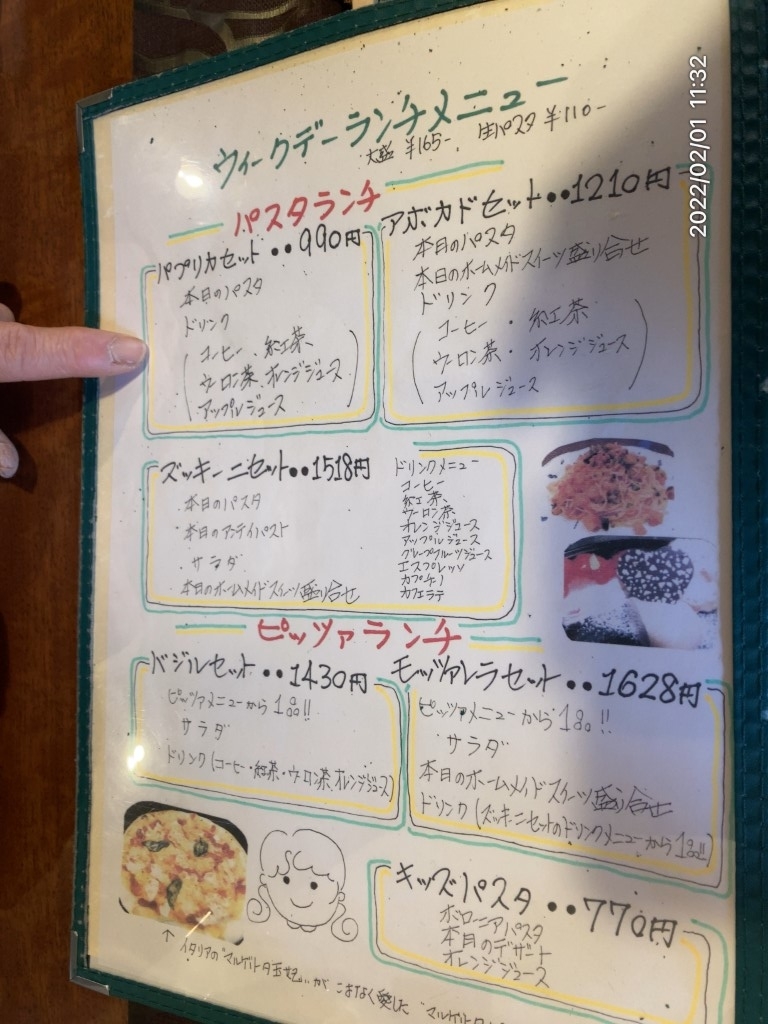 ウィークデーランチメニュー
大盛 ¥165-、生パスタ ¥110-
パスタランチ
パプリカセット・・990円
本日のパスタ
ドリンク
(コーヒー、紅茶、
ウーロン茶、オレンジジュース
アップルジュース)
アボカドセット・・1210円
本日のパスタ
本日のホームメイドスイーツ盛り合せ
ドリンク
(コーヒー・紅茶
ウーロン茶・オレンジジュース
アップルジュース)
ズッキーニセット・・1518円
本日のパスタ
本日のアンティパスト
サラダ
本日のホームメイドスイーツ盛り合せ
ドリンクメニュー
コーヒー
紅茶、
ウーロン茶
オレンジジュース
アップルジュース
グレープフルーツジュース
エスプレッソ
カプチーノ
カフェラテ
ピッツァランチ
バジルセット・・1430円
ピッツァメニューから1品!!
サラダ
ドリンク(コーヒー・紅茶・ウーロン茶、オレンジジュース)
モッツァレラセット・・1628円
ピッツァメニューから1品!!
サラダ
本日のホームメイドスイーツ盛り合せ
ドリンク(ズッキーニセットのドリンクメニューから1品!!)
キッズパスタ・・770円
ボローニアパスタ
本日のデザート
オレンジジュース
↑イタリアの"マルゲリータ王妃"がこよなく愛した"マルゲリータ
2022/02/01 11:32